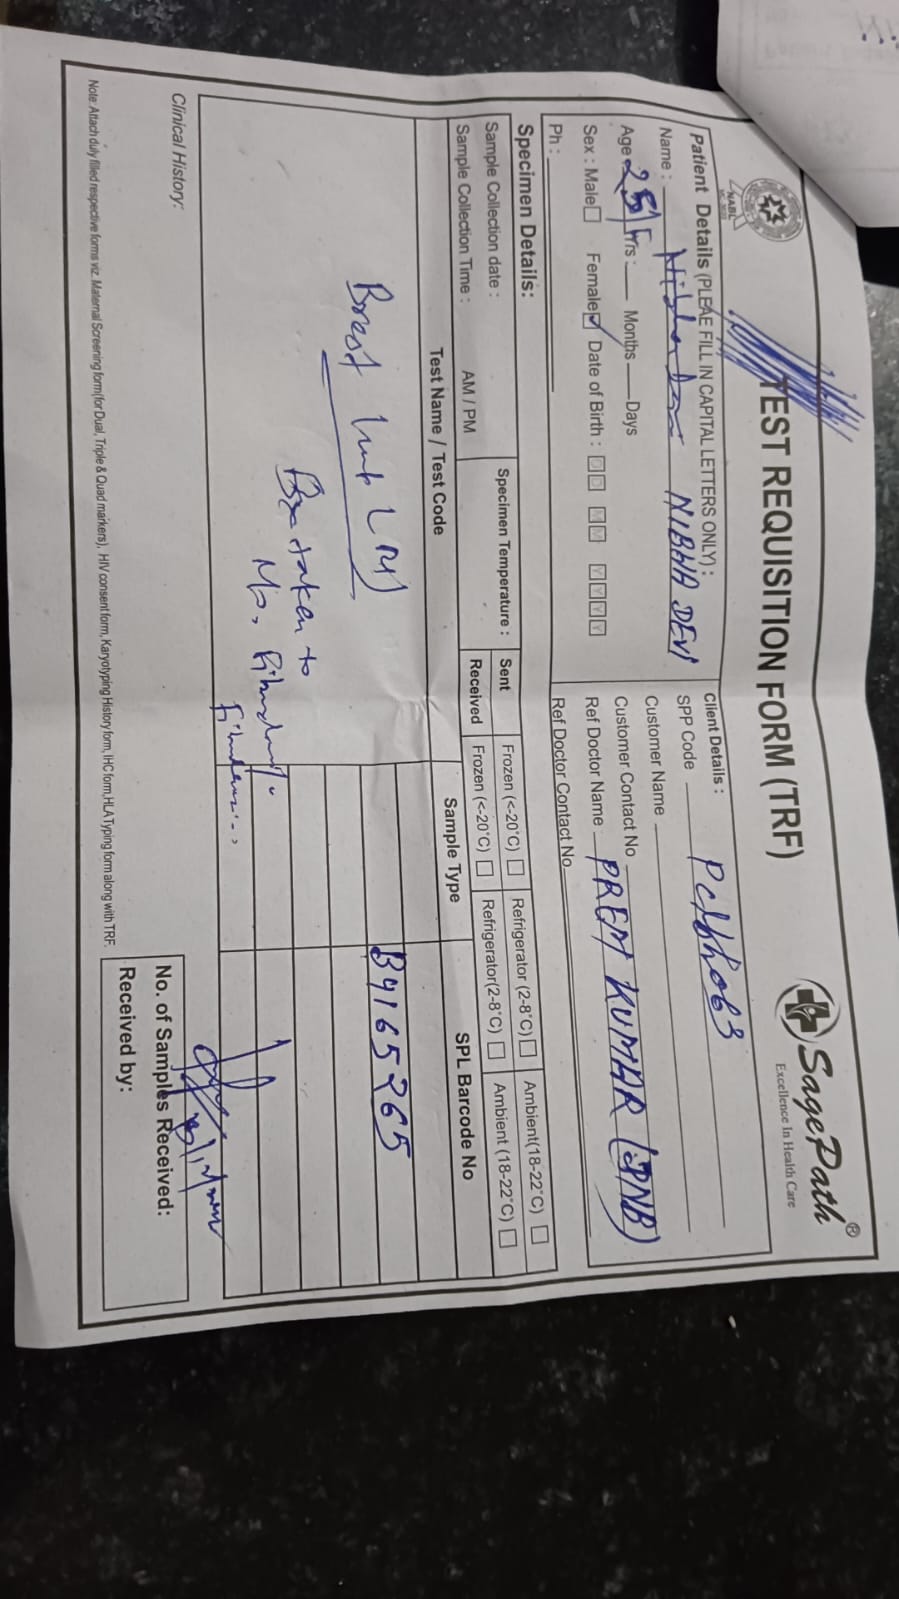 TEST REQUISITION FORM (TRF)
SagePath®
Excellence In Health Care
NABL
Patient Details (PLEAE FILL IN CAPITAL LETTERS ONLY) :
Name : NIBHA DEVI
Age 25/F Yrs : Months Days
Sex : Male Female Date of Birth : D D M M Y Y Y Y
Ph :
Client Details :
SPP Code
Customer Name
Customer Contact No
Ref Doctor Name PREM KUMAR (PNB)
Ref Doctor Contact No
Specimen Details:
Sample Collection date :
Sample Collection Time : AM / PM
Specimen Temperature :
Sent Frozen (<-20°C) Refrigerator (2-8°C) Ambient(18-22°C)
Received Frozen (<-20°C) Refrigerator(2-8°C) Ambient (18-22°C)
Test Name / Test Code Sample Type SPL Barcode No
B4165265
Breast
taken to
Clinical History:
No. of Samples Received:
Received by:
Note: Attach duly filled respective forms viz. Maternal Screening form(for Dual, Triple & Quad markers), HIV consent form, Karyotyping History form, IHC form,HLA Typing form along with TRF.